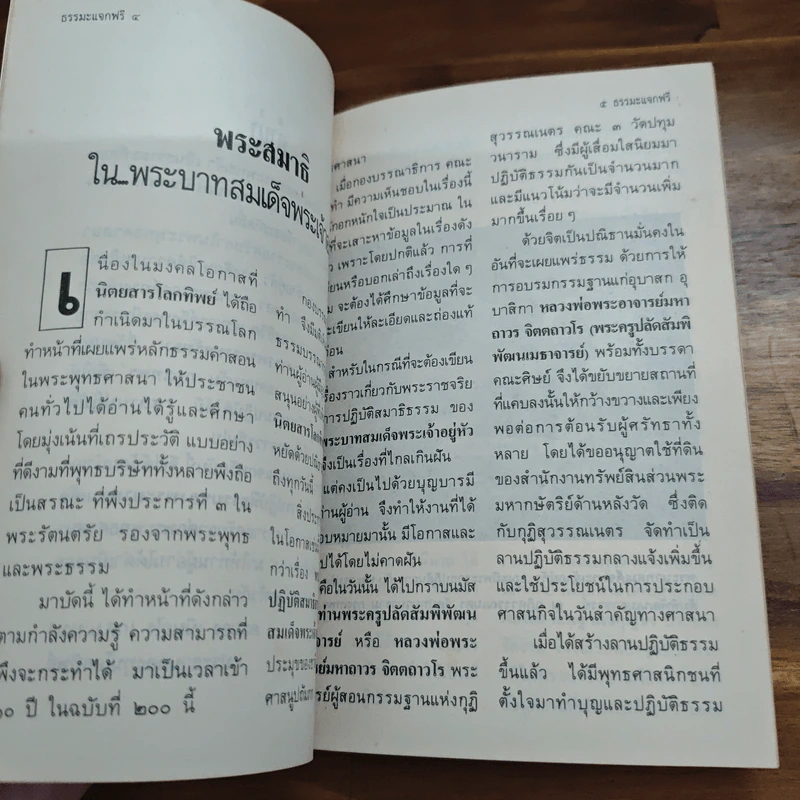 ธรรมะแจกฟรี ๔
พระสมาธิ
ใน...พระบาทสมเด็จพระเจ้า
เนื่องในมงคลโอกาสที่
นิตยสารโลกทิพย์ ได้ถือ
กำเนิดมาในบรรณโลก
ทำหน้าที่เผยแพร่หลักธรรมคำสอน
ในพระพุทธศาสนา ให้ประชาชน
คนทั่วไปได้อ่านได้รู้และศึกษา
โดยมุ่งเน้นที่เถรประวัติ แบบอย่าง
ที่ดีงามที่พุทธบริษัททั้งหลายพึงถือ
เป็นสรณะ ที่พึ่งประการที่ ๓ ใน
พระรัตนตรัย รองจากพระพุทธ
และพระธรรม
มาบัดนี้ ได้ทำหน้าที่ดังกล่าว
ตามกำลังความรู้ ความสามารถที่
พึงจะกระทำได้ มาเป็นเวลาเข้า
๑๐ ปี ในฉบับที่ ๒๐๐ นี้
ทำ จึงมี
ธรรมบรรณา
ท่านผู้อ่านผู้
สนุนอย่าง
นิตยสารโลก
หยัดด้วย
ถึงทุกวันนี้
ในโอกาส
กว่าเรื่อง
ปฏิบัติสมา
สมเด็จพระ
ประมุขของ
๕ ธรรมะแจกฟรี
ศาสนา
เมื่อกองบรรณาธิการ คณะ
ทำ มีความเห็นชอบในเรื่องนี้
หนักใจเป็นประมาณ ใน
ที่จะเสาะหาข้อมูลในเรื่องดัง
เพราะโดยปกติแล้ว การที่
เขียนหรือบอกเล่าถึงเรื่องใด ๆ
จะต้องได้ศึกษาข้อมูลที่จะ
จะเขียนให้ละเอียดและถ่องแท้
ก่อน
สำหรับในกรณีที่จะต้องเขียน
เรื่องราวเกี่ยวกับพระราชจริย
การปฏิบัติสมาธิธรรม ของ
พระบาทสมเด็จพระเจ้าอยู่หัว
จึงเป็นเรื่องที่ไกลเกินฝัน
แต่คงเป็นไปด้วยบุญบารมี
ท่านผู้อ่าน จึงทำให้งานที่ได้
มอบหมายมานั้น มีโอกาสและ
ไปได้โดยไม่คาดฝัน
คือในวันนั้น ได้ไปกราบนมัส
ท่านพระครูปลัดสัมพิพัฒน
จารย์ หรือ หลวงพ่อพระ
มหาถาวร จิตตถาวโร พระ
ผู้สอนกรรมฐานแห่งกุฏิ
สุวรรณเนตร คณะ ๓ วัดปทุม
วนาราม ซึ่งมีผู้เลื่อมใสนิยมมา
ปฏิบัติธรรมกันเป็นจำนวนมาก
และมีแนวโน้มว่าจะมีจำนวนเพิ่ม
มากขึ้นเรื่อย ๆ
ด้วยจิตเป็นปณิธานมั่นคงใน
อันที่จะเผยแพร่ธรรม ด้วยการให้
การอบรมกรรมฐานแก่อุบาสก อุ
บาสิกา หลวงพ่อพระอาจารย์มหา
ถาวร จิตตถาวโร (พระครูปลัดสัมพิ
พัฒนเมธาจารย์) พร้อมทั้งบรรดา
คณะศิษย์ จึงได้ขยับขยายสถานที่
ที่แคบลงนั้นให้กว้างขวางและเพียง
พอต่อการต้อนรับผู้ศรัทธาทั้ง
หลาย โดยได้ขออนุญาตใช้ที่ดิน
ของสำนักงานทรัพย์สินส่วนพระ
มหากษัตริย์ด้านหลังวัด ซึ่งติด
กับกุฏิสุวรรณเนตร จัดทำเป็น
ลานปฏิบัติธรรมกลางแจ้งเพิ่มขึ้น
และใช้ประโยชน์ในการประกอบ
ศาสนกิจในวันสำคัญทางศาสนา
เมื่อได้สร้างลานปฏิบัติธรรม
ขึ้นแล้ว ได้มีพุทธศาสนิกชนที่
ตั้งใจมาทำบุญและปฏิบัติธรรม